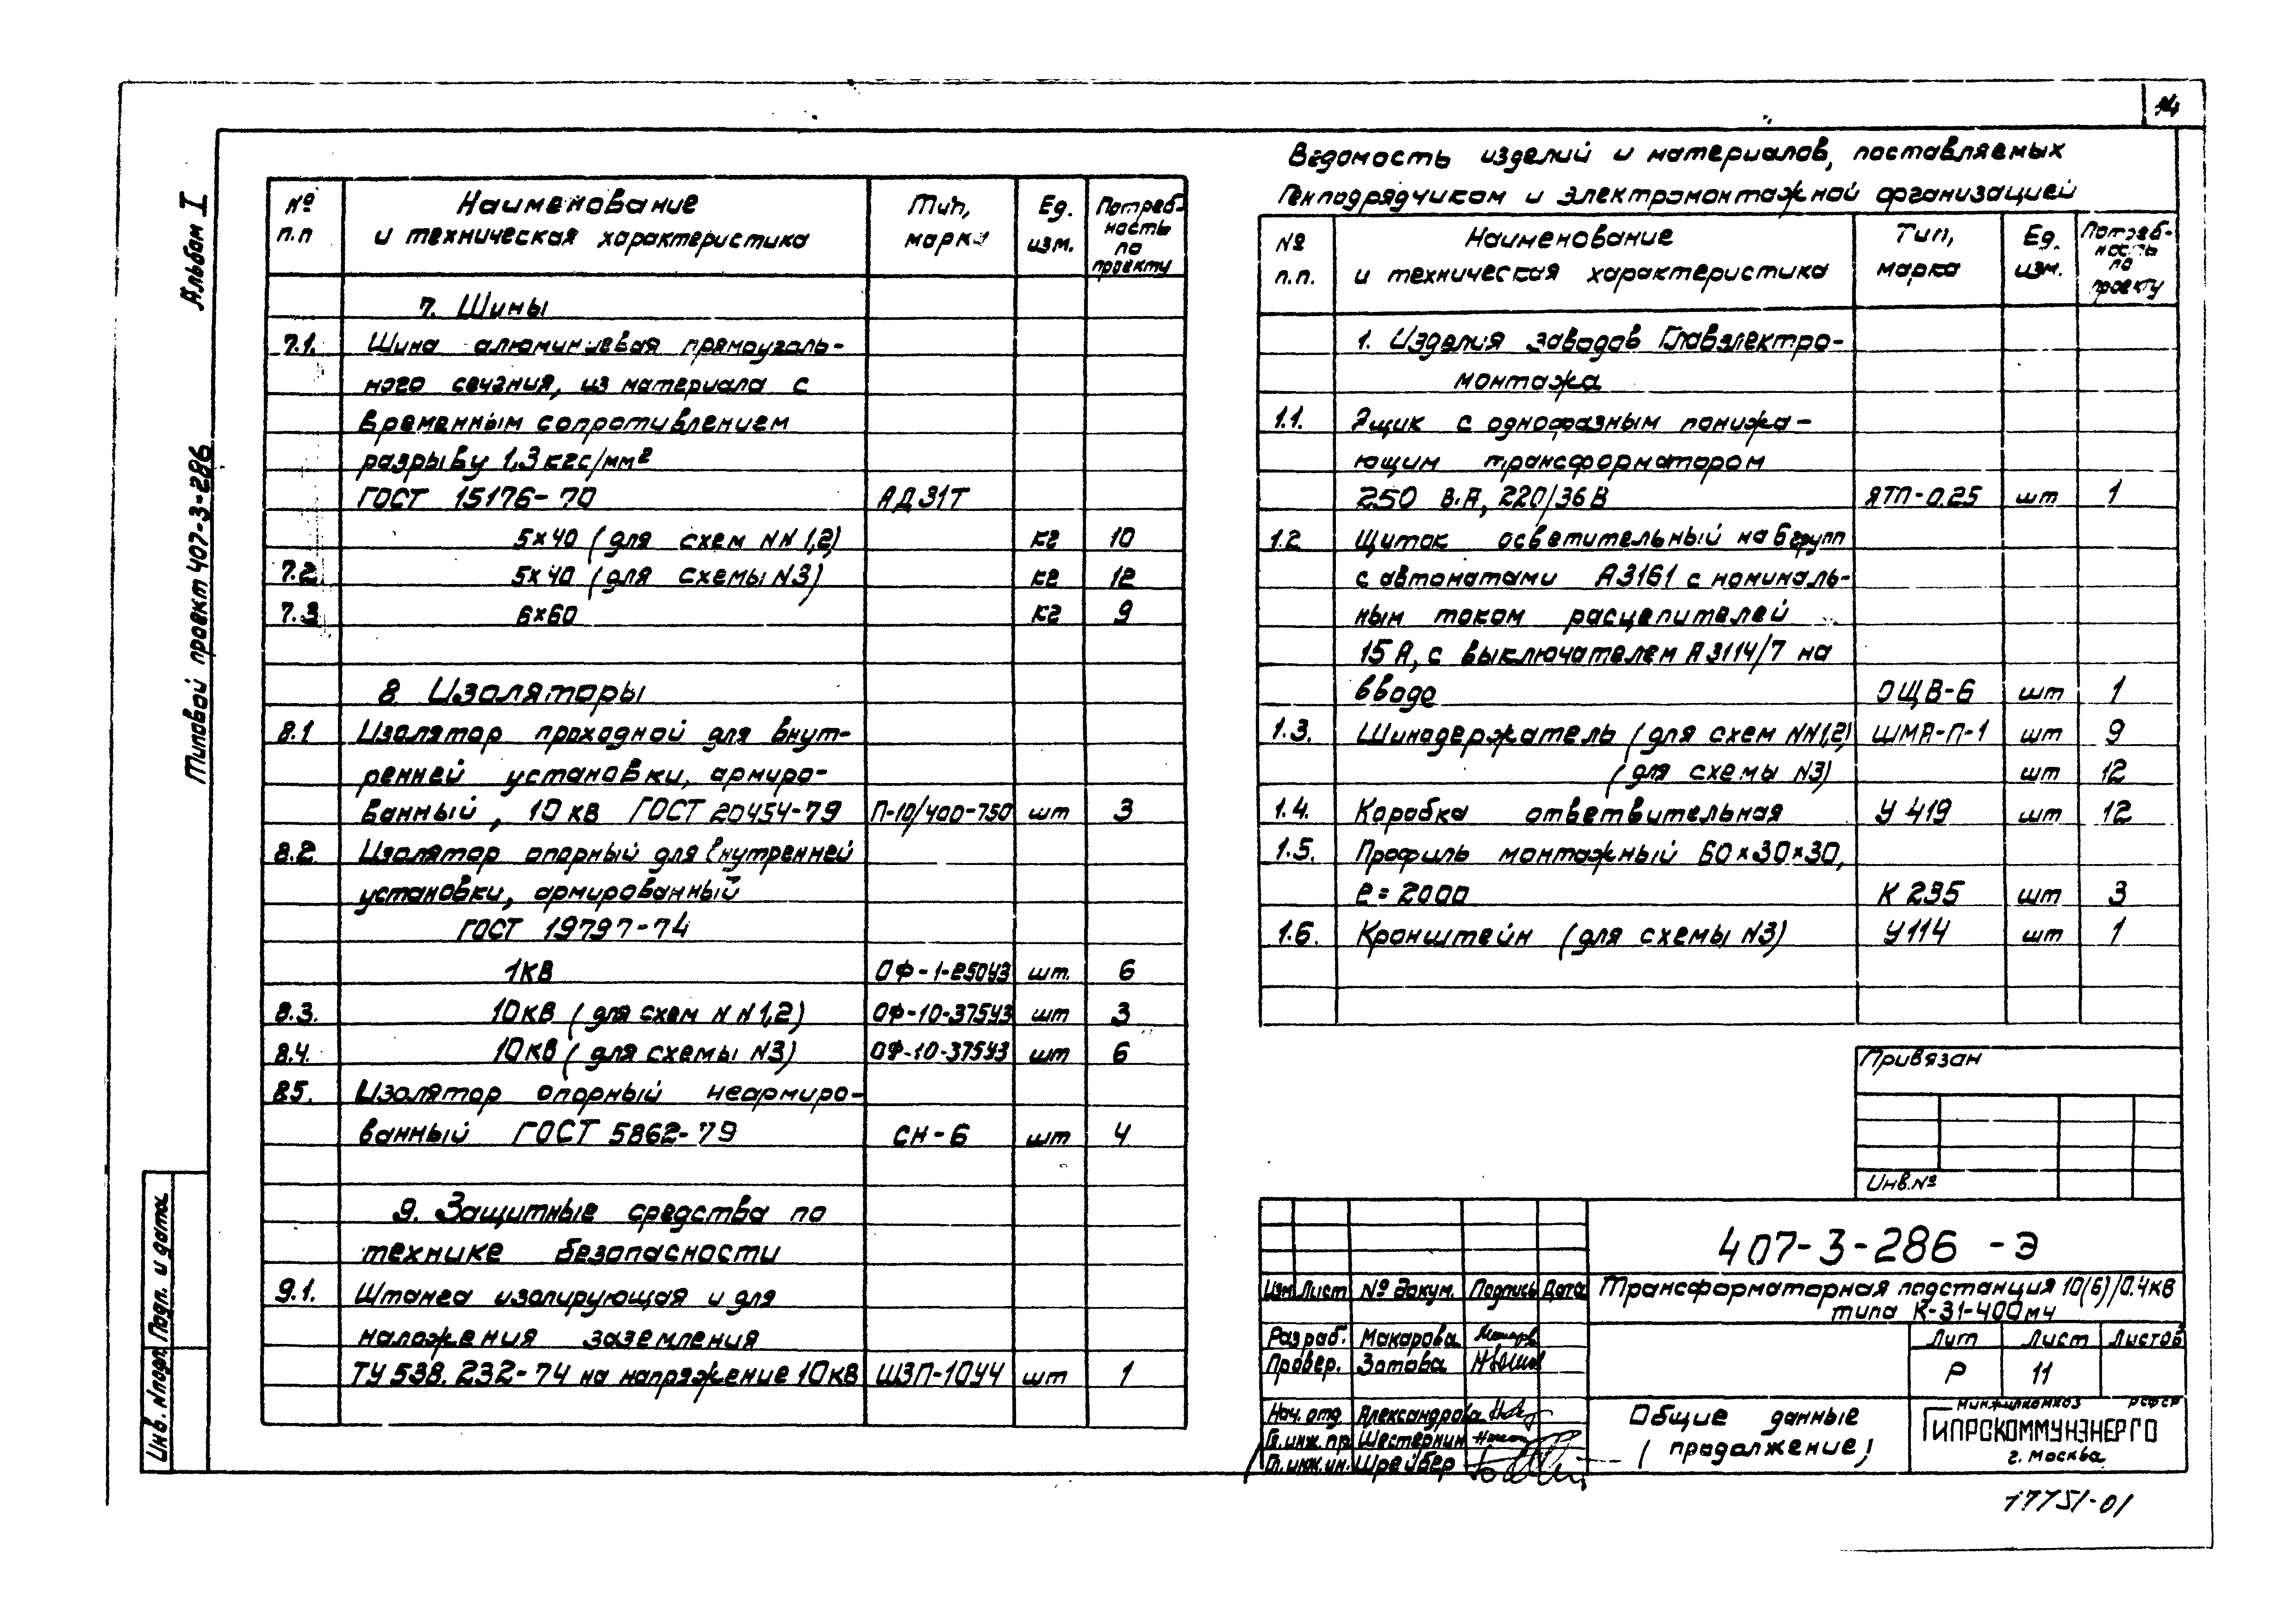 14
Альбом I
Типовой проект 407-3-286
№ п.п
Наименование и техническая характеристика
Тип, марка
Ед. изм.
Потреб-ность по проекту
7. Шины
7.1. Шина алюминиевая прямоуголь-
ного сечения, из материала с
временным сопротивлением
разрыву 1,3 кгс/мм²
ГОСТ 15176-70 АД31Т
5×40 (для схем NN 1,2) кг 10
7.2. 5×40 (для схемы N3) кг 12
7.3 6×60 кг 9
8 Изоляторы
8.1 Изолятор проходной для внут-
ренней установки, армиро-
ванный, 10 кв ГОСТ 20454-79 П-10/400-750 шт 3
8.2 Изолятор опорный для внутренней
установки, армированный
ГОСТ 19797-74
1кв ОФ-1-250У3 шт. 6
8.3. 10кв (для схем NN 1,2) ОФ-10-375У3 шт 3
8.4. 10кв (для схемы N3) ОФ-10-375У3 шт 6
8.5. Изолятор опорный неармиро-
ванный ГОСТ 5862-79 СН-6 шт 4
9. Защитные средства по
технике безопасности
9.1. Штанга изолирующая и для
наложения заземления
ТУ 538.232-74 на напряжение 10кв ШЗП-10У4 шт 1
Ведомость изделий и материалов, поставляемых
Генподрядчиком и электромонтажной организацией
№ п.п.
Наименование и техническая характеристика
Тип, марка
Ед. изм.
Потреб-ность по проекту
1. Изделия заводов Главэлектро-
монтажа
1.1. Ящик с однофазным понижа-
ющим трансформатором
250 В.А, 220/36В ЯТП-0.25 шт 1
1.2 Щиток осветительный на 6 групп
с автоматами А3161 с номиналь-
ным током расцепителей
15А, с выключателем А3114/7 на
вводе ОЩВ-6 шт 1
1.3. Шинодержатель (для схем NN1,2) ШМА-П-1 шт 9
(для схемы N3) шт 12
1.4. Коробка ответвительная У 419 шт 12
1.5. Профиль монтажный 60×30×30,
е=2000 К 235 шт 3
1.6. Кронштейн (для схемы N3) У114 шт 1
Привязан
Инв.№
407-3-286 -Э
Изм Лист № докум. Подпись Дата
Трансформаторная подстанция 10(6)/0.4кв
типа К-31-400м4
Разраб. Макарова
Провер. Зотова
Лит Лист Листов
Р 11
Нач. отд Александрова
Гл. инж. пр. Шестернин
Гл. инж. ин. Шрейбер
Общие данные
(продолжение)
Минжилкомхоз РСФСР
ГИПРОКОММУНЭНЕРГО
г. Москва
Инв. N подл. Подп. и дата
17751-01